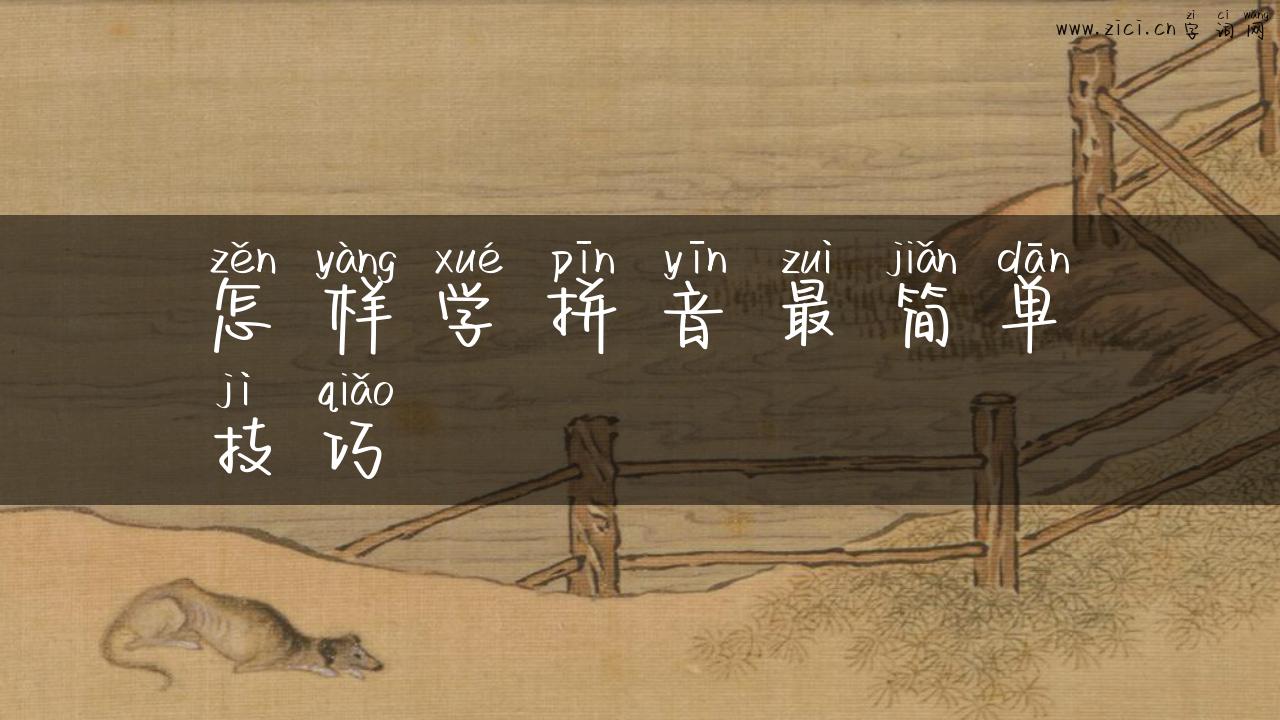 zi ci wang
www.zici.cn 字词网
zěn yàng xué pīn yīn zuì jiǎn dān
怎样学拼音最简单
jì qiǎo
技巧